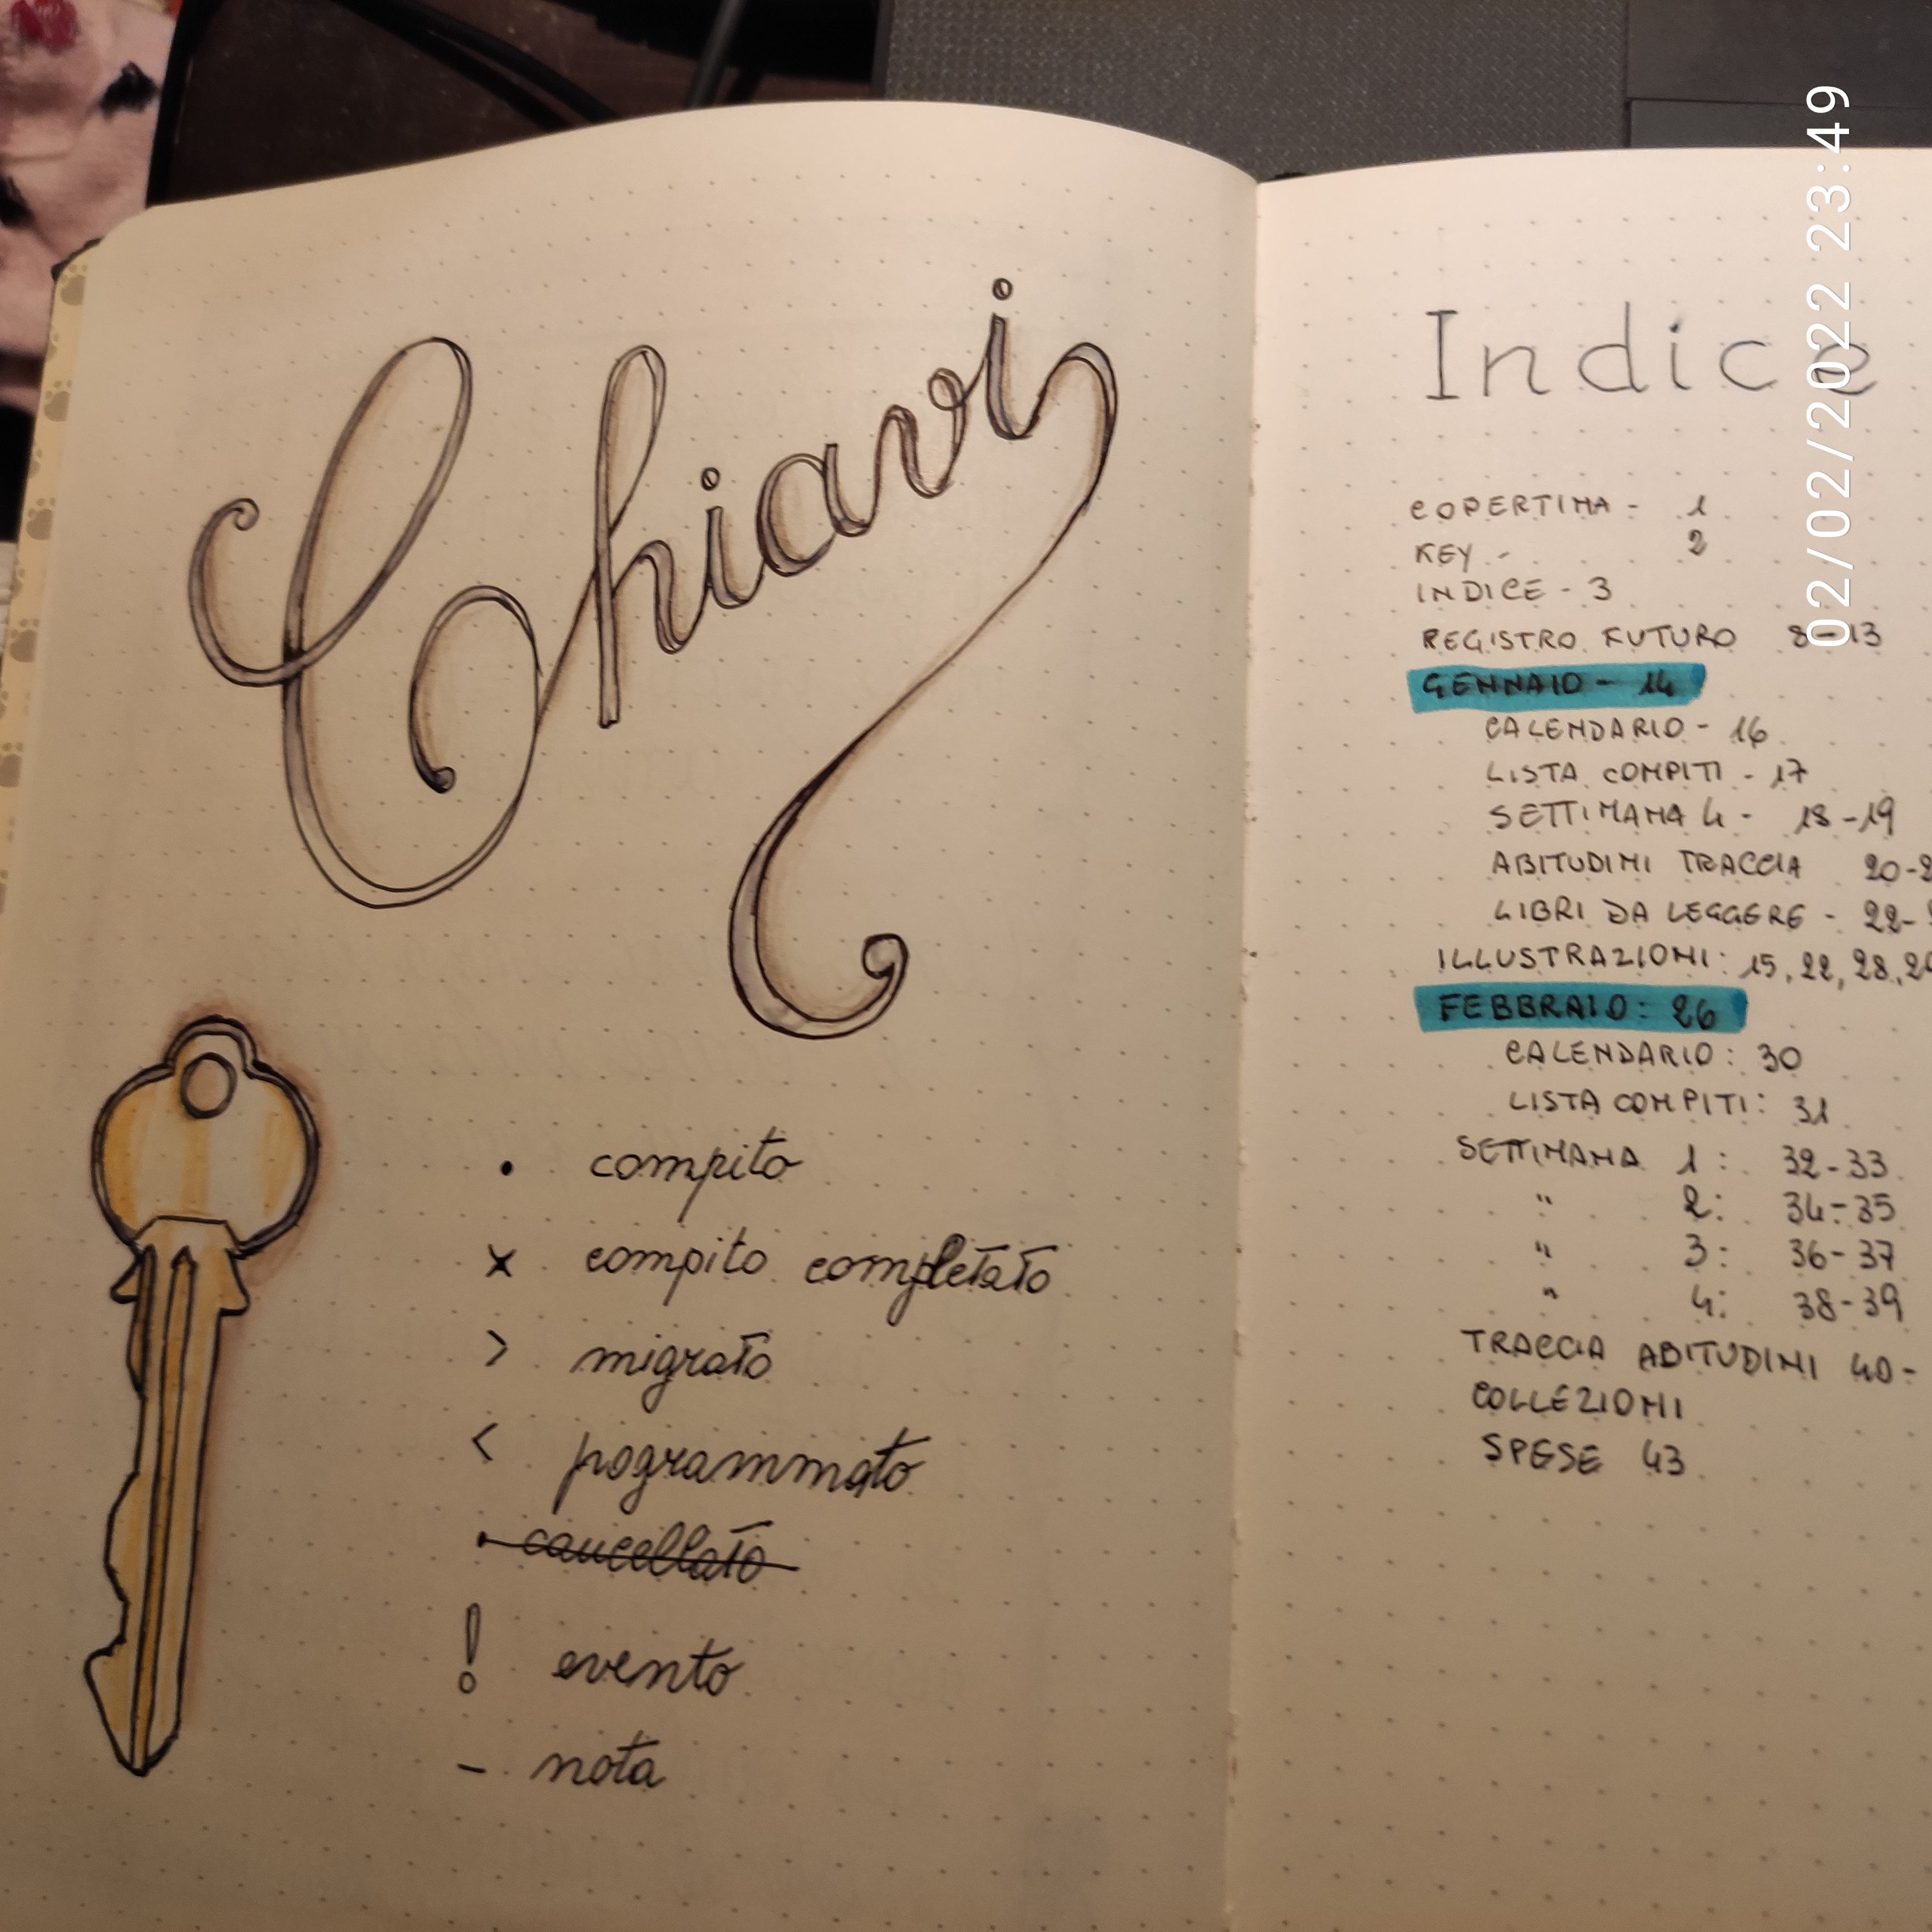 Chiavi
• compito
x compito completato
> migrato
< pogrammato
• cancellato
! evento
- nota
Indice
COPERTINA - 1
KEY - 2
INDICE - 3
REGISTRO FUTURO 8-13
GENNAIO - 14
CALENDARIO - 16
LISTA COMPITI - 17
SETTIMANA 4 - 18-19
ABITUDINI TRACCIA 20-2
LIBRI DA LEGGERE - 22-
ILLUSTRAZIONI: 15, 22, 28, 2
FEBBRAIO: 26
CALENDARIO: 30
LISTA COMPITI: 31
SETTIMANA 1: 32-33
" 2: 34-35
" 3: 36-37
" 4: 38-39
TRACCIA ABITUDINI 40-
COLLEZIONI
SPESE 43
02/02/2022 23:49